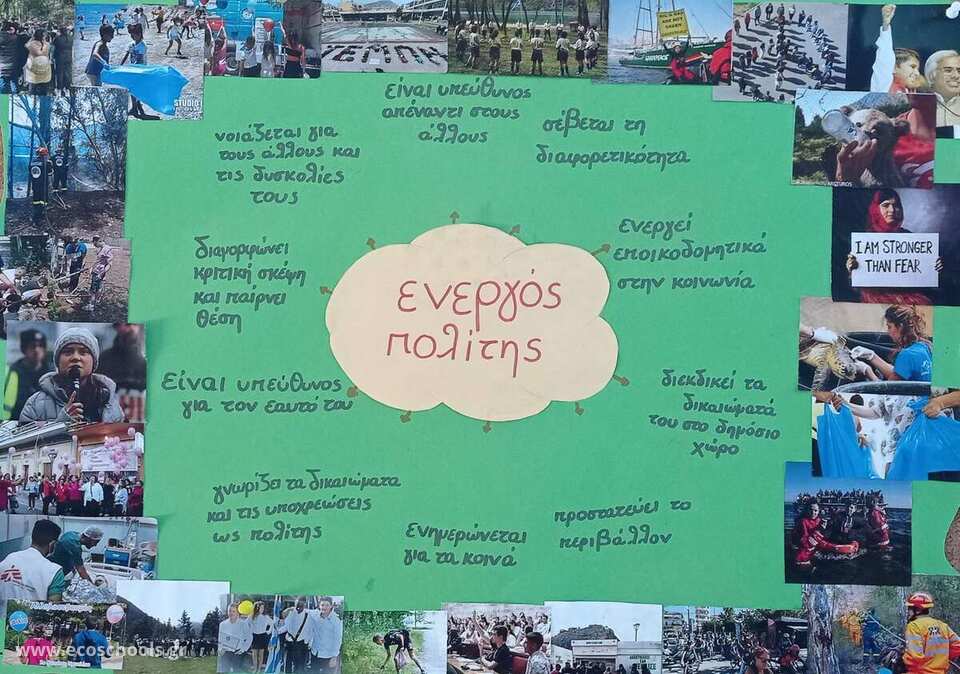 είναι υπεύθυνος
απέναντι στους
άλλους
σέβεται τη
διαφορετικότητα
νοιάζεται για
τους άλλους και
τις δυσκολίες
τους
ενεργεί
εποικοδομητικά
στην κοινωνία
διαμορφώνει
κριτική σκέψη
και παίρνει
θέση
ενεργός
πολίτης
είναι υπεύθυνος
για τον εαυτό του
διεκδικεί τα
δικαιώματά
του στο δημόσιο
χώρο
γνωρίζει τα δικαιώματα
και τις υποχρεώσεις
ως πολίτης
ενημερώνεται
για τα κοινά
προστατεύει το
περιβάλλον
I AM STRONGER
THAN FEAR
STUDIO
GREENPEACE
ARCTUROS
www.ecoschools.gr